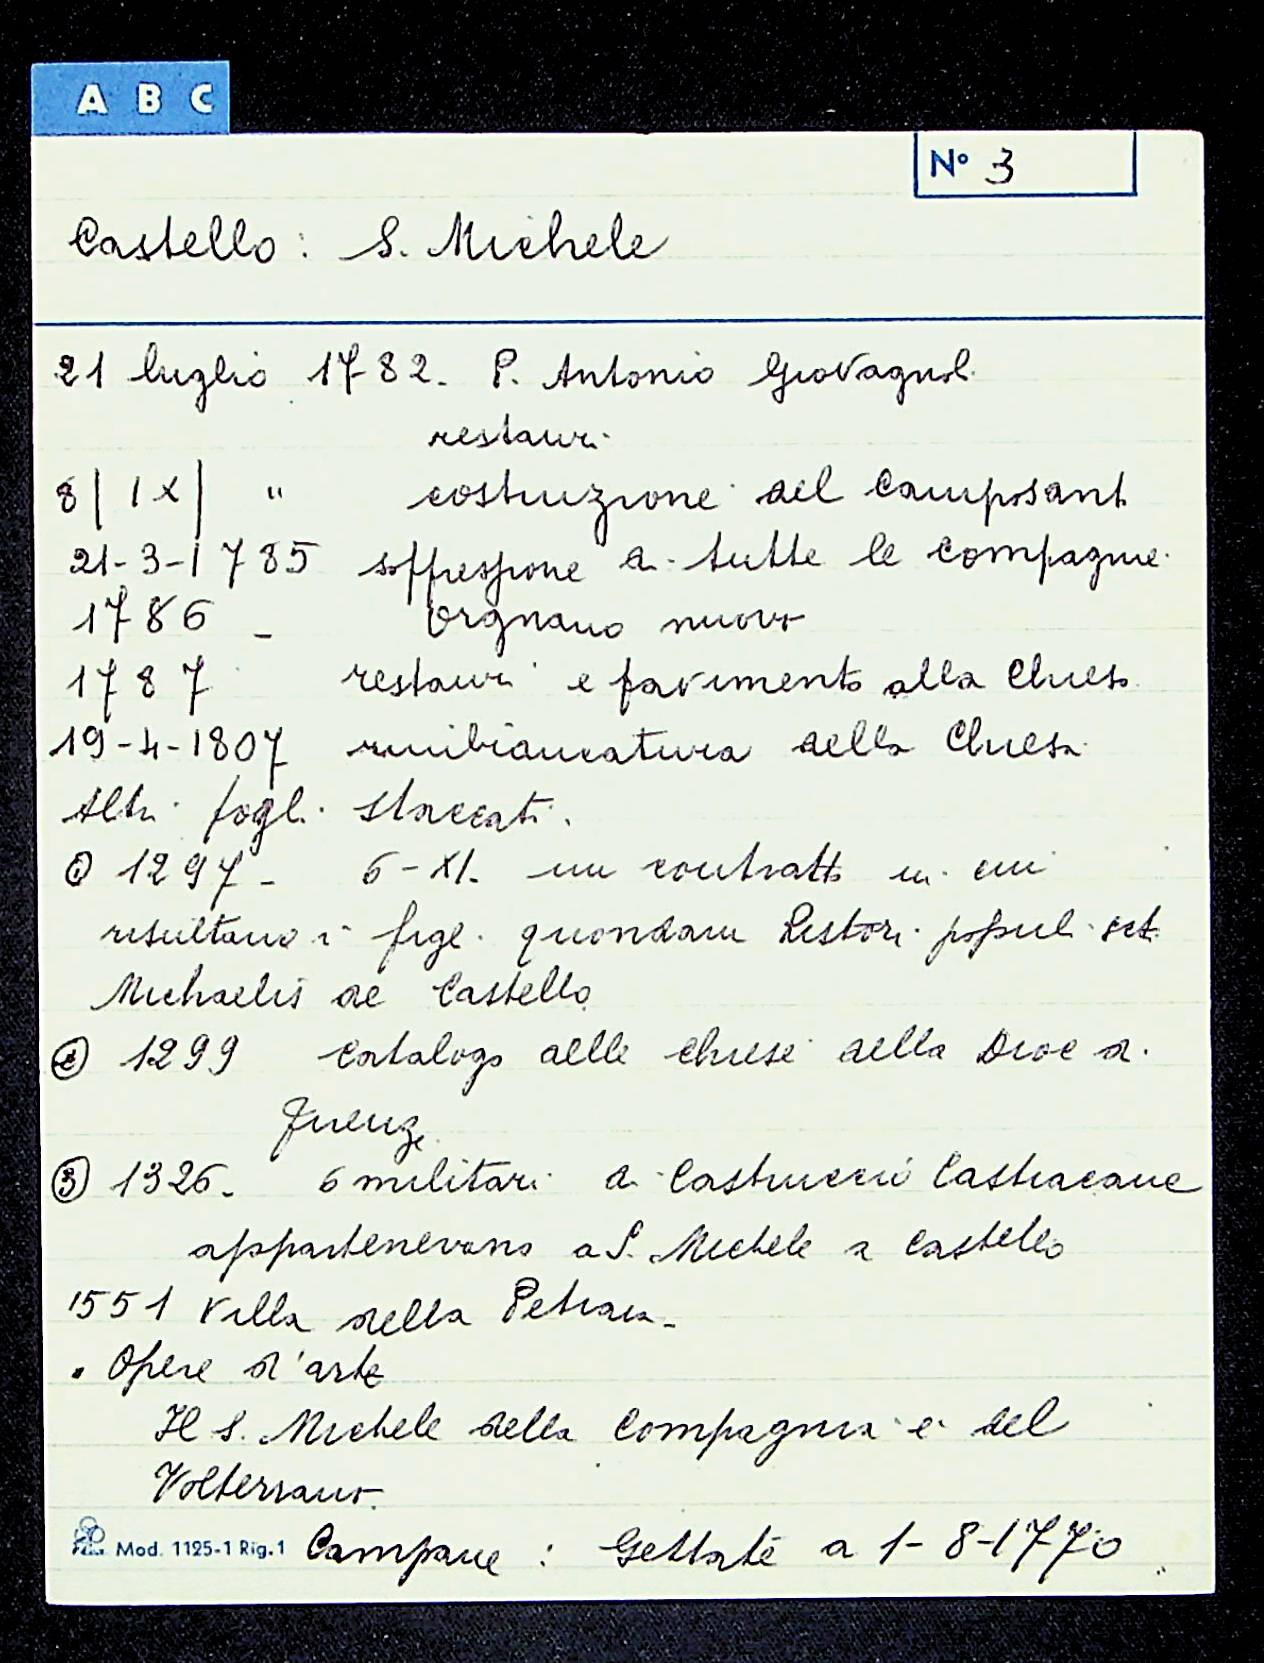 A B C
N° 3
Castello: S. Michele
21 luglio 1782. P. Antonio Giovagnoli
restauri
8 | IX | " costruzione del Camposant.
21-3-1785 soppressione di tutte le compagnie
1786 - organo nuovo
1787 restauri e pavimento alla Chiesa
19-4-1807 rimbiancatura della Chiesa
Altri fogli staccati.
① 1297 - 6-XI. un contratto in cui
risultano i figli quondam Ristori popul. sct.
Michaelis de Castello
② 1299 catalogo delle chiese della Dioc di
Firenze
③ 1326. 6 militari di Castruccio Castracane
appartenevano a S. Michele a Castello
1551 Villa della Petraia-
. Opere d'arte
Il S. Michele della Compagnia è del
Volterrano.
Mod. 1125-1 Rig.1 Campane : Gettate a 1-8-1770